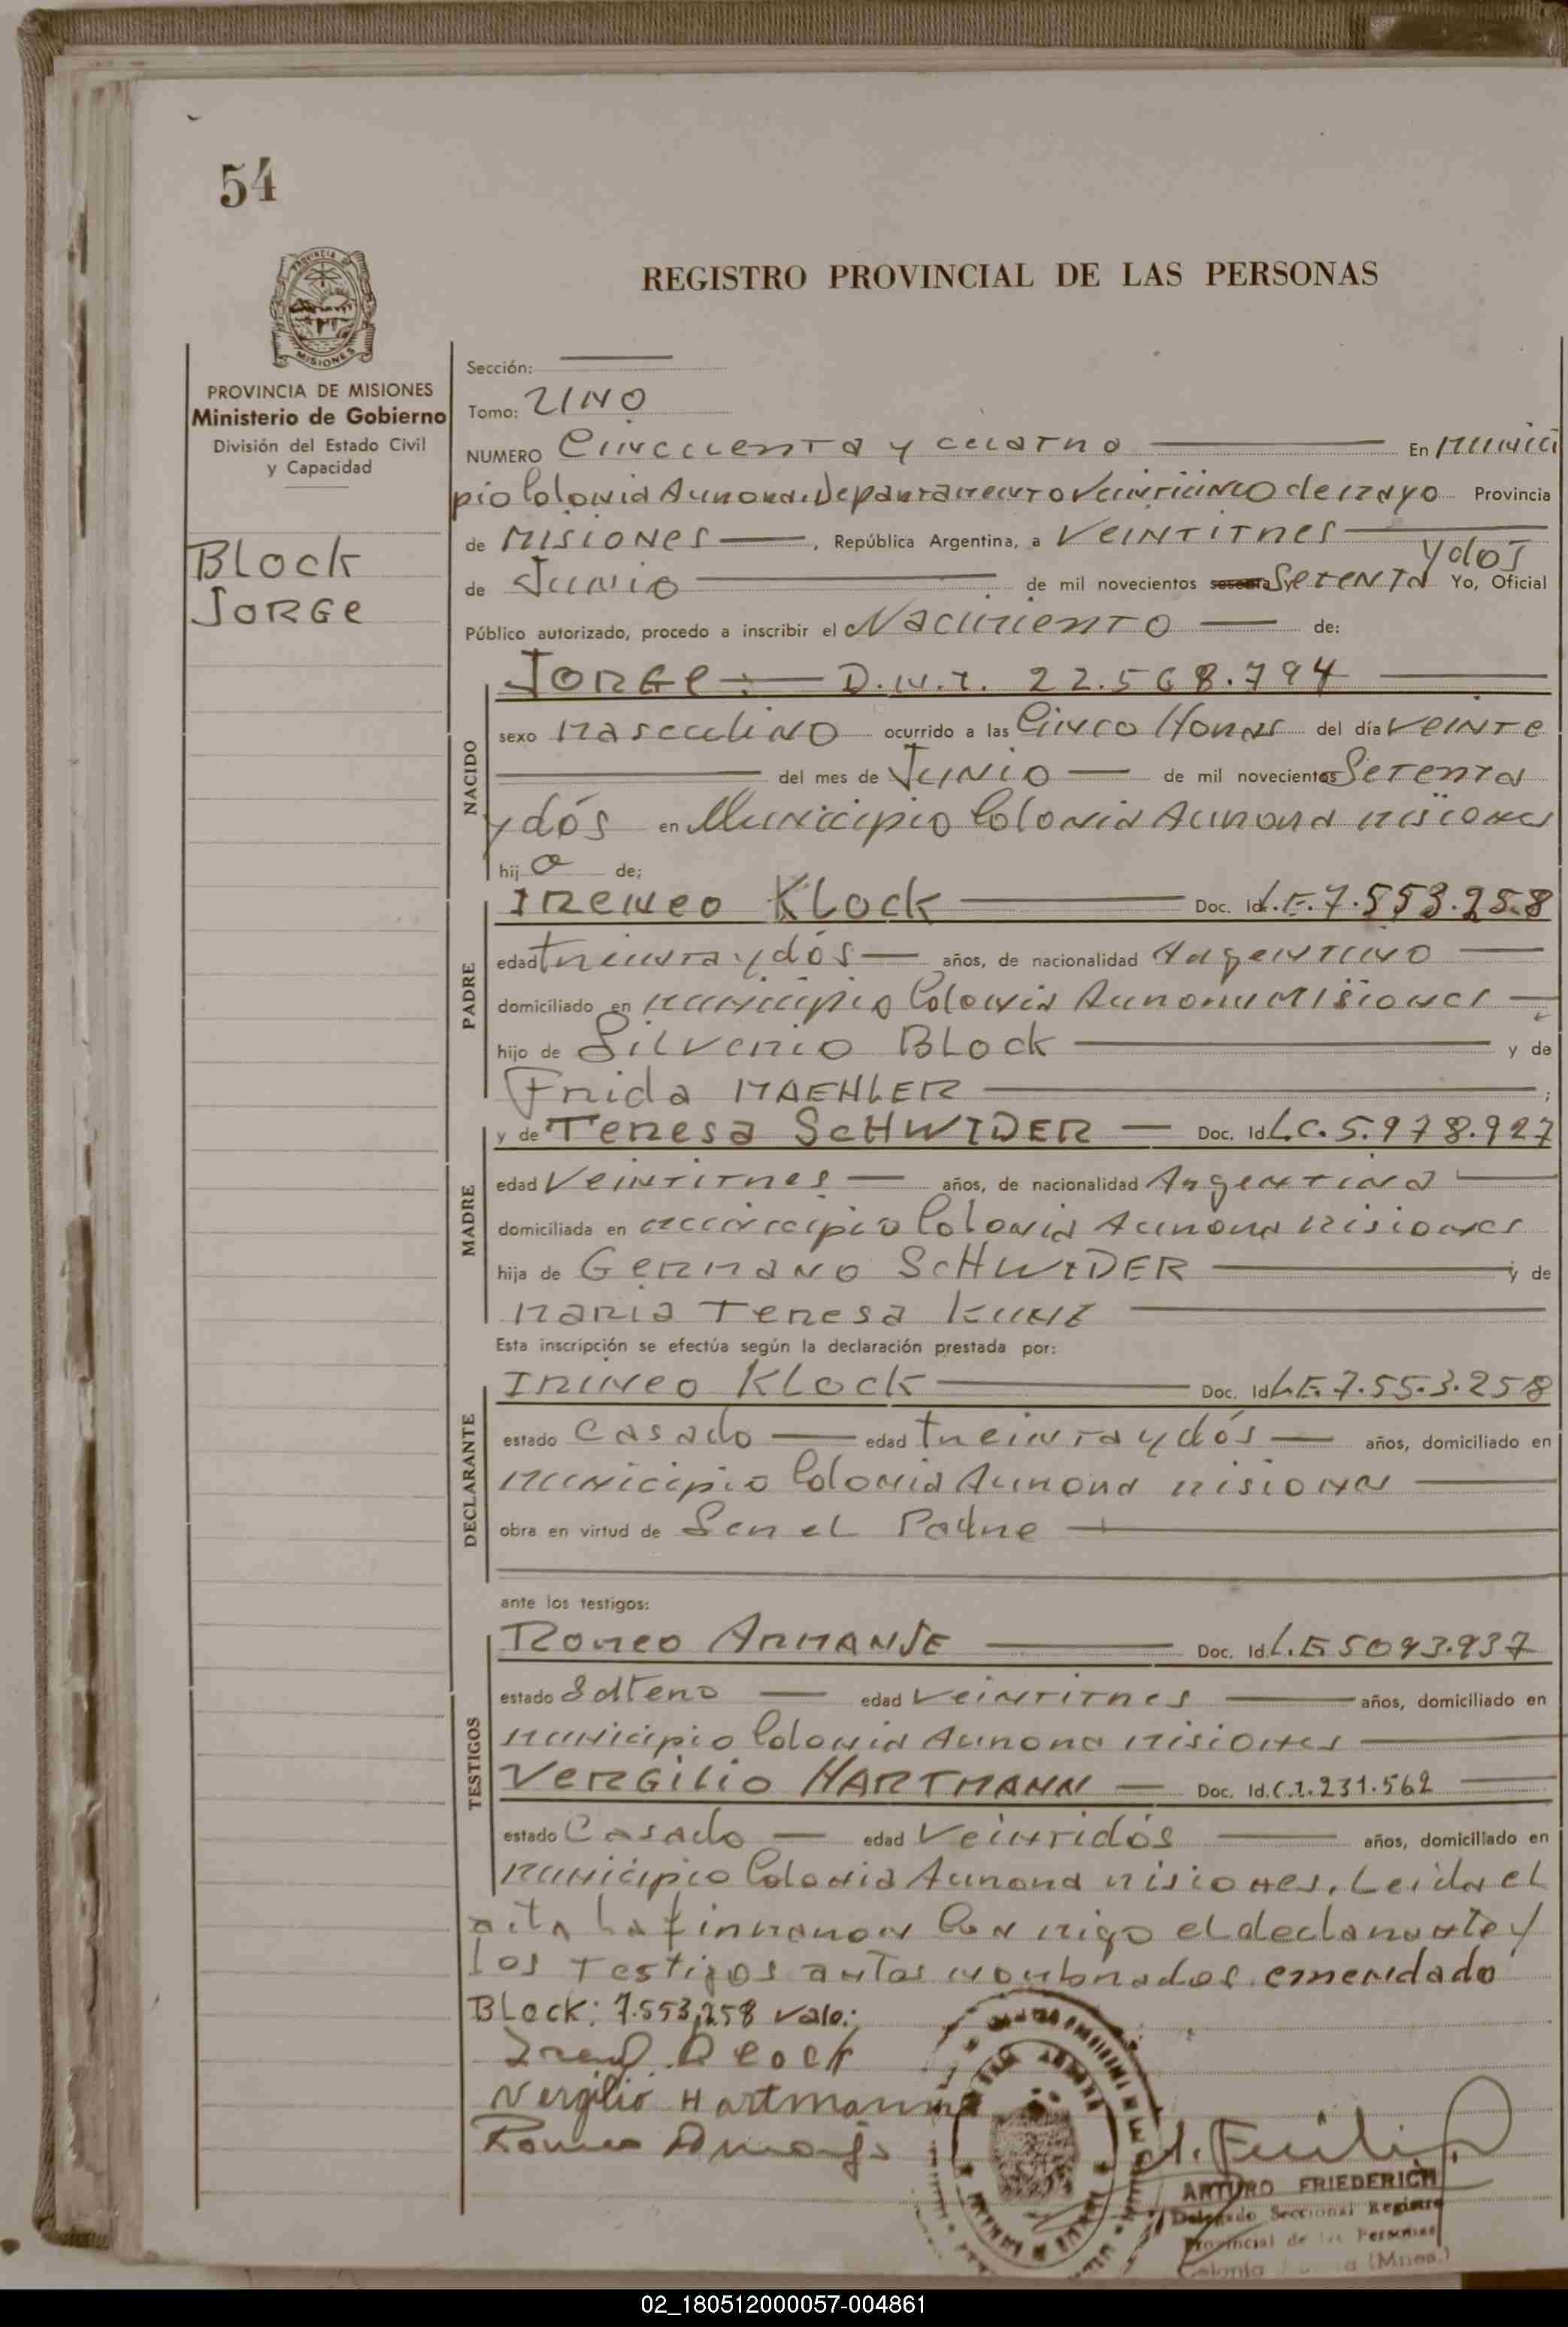 54
PROVINCIA DE
MISIONES
REGISTRO PROVINCIAL DE LAS PERSONAS
PROVINCIA DE MISIONES
Ministerio de Gobierno
División del Estado Civil
y Capacidad
Block
Jorge
Sección:
Tomo: UNO
NUMERO Cincuenta y cuatro En Munici
pio Colonia Aurora. Departamento Veinticinco de mayo Provincia
de Misiones, República Argentina, a Veintitres
de Junio de mil novecientos sesenta y Setenta y dos Yo, Oficial
Público autorizado, procedo a inscribir el Nacimiento de:
JORGE D.N.I. 22.568.794
NACIDO
sexo Masculino ocurrido a las Cinco Horas del día Veinte
del mes de Junio de mil novecientos Setenta
y dós en Municipio Colonia Aurora Misiones
hijo de;
PADRE
Ireneo Klock Doc. Id. L.E. 7.553.258
edad treinta y dós años, de nacionalidad Argentino
domiciliado en municipio Colonia Aurora Misiones
hijo de Silverio Block y de
Frida MAEHLER ;
MADRE
y de Teresa SCHWIDER Doc. Id. L.C. 5.978.927
edad Veintitres años, de nacionalidad Argentina
domiciliada en municipio Colonia Aurora Misiones
hija de Germano SCHWIDER y de
Maria Teresa
Esta inscripción se efectúa según la declaración prestada por:
DECLARANTE
Irineo Klock Doc. Id. L.E. 7.553.258
estado Casado edad treinta y dós años, domiciliado en
municipio Colonia Aurora Misiones
obra en virtud de Ser el Padre
ante los testigos:
TESTIGOS
Romeo ARMANJE Doc. Id. L.E 5093.937
estado Soltero edad Veintitres años, domiciliado en
municipio Colonia Aurora Misiones
Vergilio HARTMANN Doc. Id. C.I. 231.562
estado Casado edad Veintidós años, domiciliado en
municipio Colonia Aurora Misiones. Leida el
acta la firmaron Con migo el declarante y
los Testigos antes nombrados. emendado
Block: 7.553,258 vale:
Block
Vergilio Hartmann
Romeo
ARTURO FRIEDERICH
Delegado Seccional Registro
Provincial de las Personas
Colonia (Mnes.)
02_180512000057-004861